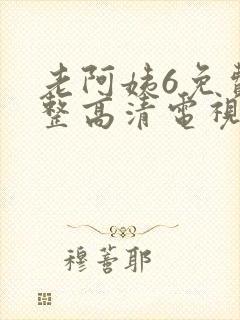 老阿姨6免費
整高清電視
穆薈耶